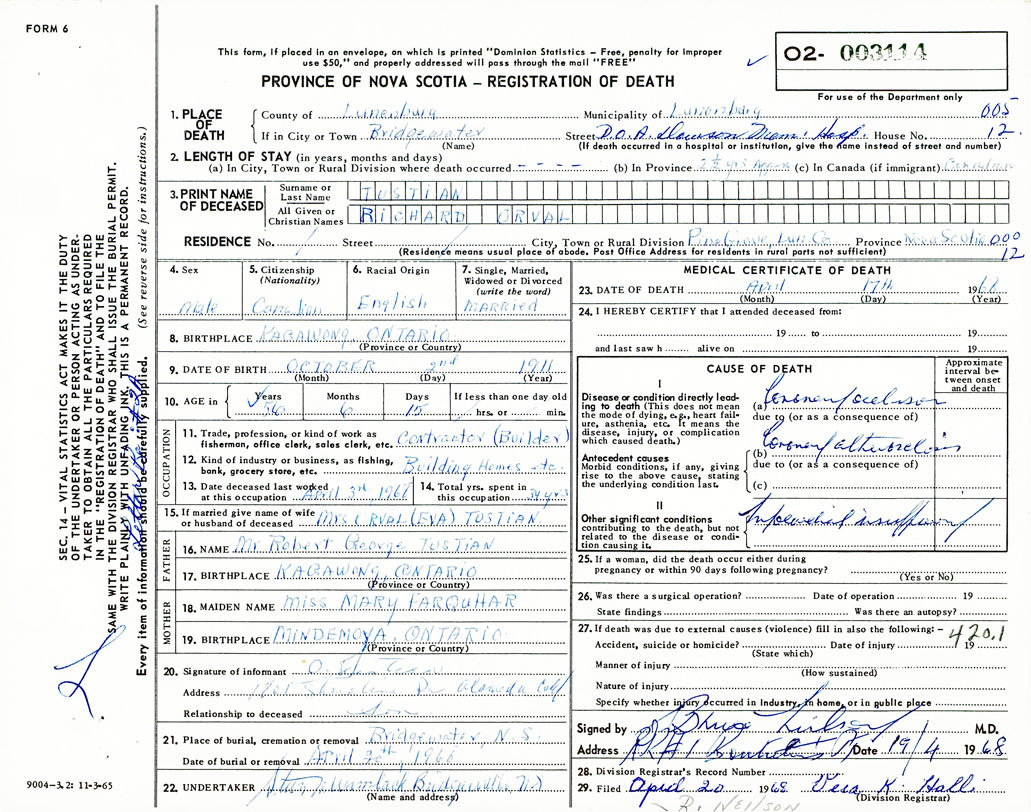 FORM 6
This form, if placed in an envelope, on which is printed "Dominion Statistics – Free, penalty for improper
use $50," and properly addressed will pass through the mail "FREE"
PROVINCE OF NOVA SCOTIA – REGISTRATION OF DEATH
O2- 003114
For use of the Department only
1. PLACE OF DEATH
County of Lunenburg Municipality of Lunenburg 005
If in City or Town Bridgewater Street D.O.A. Dawson Mem. Hosp. House No. 12.
(Name) (If death occurred in a hospital or institution, give the name instead of street and number)
2. LENGTH OF STAY (in years, months and days)
(a) In City, Town or Rural Division where death occurred - - - - (b) In Province 2½ yrs (c) In Canada (if immigrant) Canadian
3. PRINT NAME OF DECEASED
Surname or Last Name TUSTIAN
All Given or Christian Names RICHARD ORVAL
RESIDENCE No. / Street / City, Town or Rural Division Pine Grove, Lun. Co. Province Nova Scotia 000
(Residence means usual place of abode. Post Office Address for residents in rural parts not sufficient) 12
4. Sex Male
5. Citizenship (Nationality) Canadian
6. Racial Origin English
7. Single, Married, Widowed or Divorced (write the word) MARRIED
8. BIRTHPLACE KAGAWONG, ONTARIO
(Province or Country)
9. DATE OF BIRTH OCTOBER 2nd 1911
(Month) (Day) (Year)
10. AGE in Years 56 Months 6 Days 15 If less than one day old hrs. or min.
OCCUPATION
11. Trade, profession, or kind of work as fisherman, office clerk, sales clerk, etc. Contractor (Builder)
12. Kind of industry or business, as fishing, bank, grocery store, etc. Building Homes etc.
13. Date deceased last worked at this occupation April 3rd 1966
14. Total yrs. spent in this occupation 34 yrs
15. If married give name of wife or husband of deceased Mrs ORVAL (EVA) TUSTIAN
FATHER
16. NAME Mr Robert George TUSTIAN
17. BIRTHPLACE KAGAWONG, ONTARIO
(Province or Country)
MOTHER
18. MAIDEN NAME Miss MARY FARQUHAR
19. BIRTHPLACE MINDEMOYA, ONTARIO
(Province or Country)
20. Signature of informant
Address Alameda Calif
Relationship to deceased Son
21. Place of burial, cremation or removal Bridgewater, N.S.
Date of burial or removal April 20th, 1966
22. UNDERTAKER Bridgewater, N.S.
(Name and address)
MEDICAL CERTIFICATE OF DEATH
23. DATE OF DEATH April 17th 1968
(Month) (Day) (Year)
24. I HEREBY CERTIFY that I attended deceased from:
19 to 19
and last saw h alive on 19
CAUSE OF DEATH
Approximate interval between onset and death
I
Disease or condition directly leading to death (This does not mean the mode of dying, e.g., heart failure, asthenia, etc. It means the disease, injury, or complication which caused death.)
(a) Coronary occlusion
due to (or as a consequence of)
Antecedent causes
Morbid conditions, if any, giving rise to the above cause, stating the underlying condition last.
(b) Coronary atherosclerosis
due to (or as a consequence of)
(c)
II
Other significant conditions contributing to the death, but not related to the disease or condition causing it.
Myocardial insufficiency
25. If a woman, did the death occur either during
pregnancy or within 90 days following pregnancy?
(Yes or No)
26. Was there a surgical operation? Date of operation 19
State findings Was there an autopsy?
27. If death was due to external causes (violence) fill in also the following: – 420.1
Accident, suicide or homicide? Date of injury 19
(State which)
Manner of injury
(How sustained)
Nature of injury
Specify whether injury occurred in Industry, in home, or in public place
Signed by M.D.
Address R.R. 1 Date 19/4 1968
28. Division Registrar's Record Number
29. Filed April 20 1968 Vera K.
(Division Registrar)
R. NEILSON
SEC. 14 – VITAL STATISTICS ACT MAKES IT THE DUTY
OF THE UNDERTAKER OR PERSON ACTING AS UNDER-
TAKER TO OBTAIN ALL THE PARTICULARS REQUIRED
IN THE "REGISTRATION OF DEATH" AND TO FILE THE
SAME WITH THE DIVISION REGISTRAR WHO SHALL ISSUE THE BURIAL PERMIT.
WRITE PLAINLY WITH UNFADING INK. THIS IS A PERMANENT RECORD.
Every item of information should be carefully supplied. (See reverse side for instructions.)
9004-3.2: 11-3-65